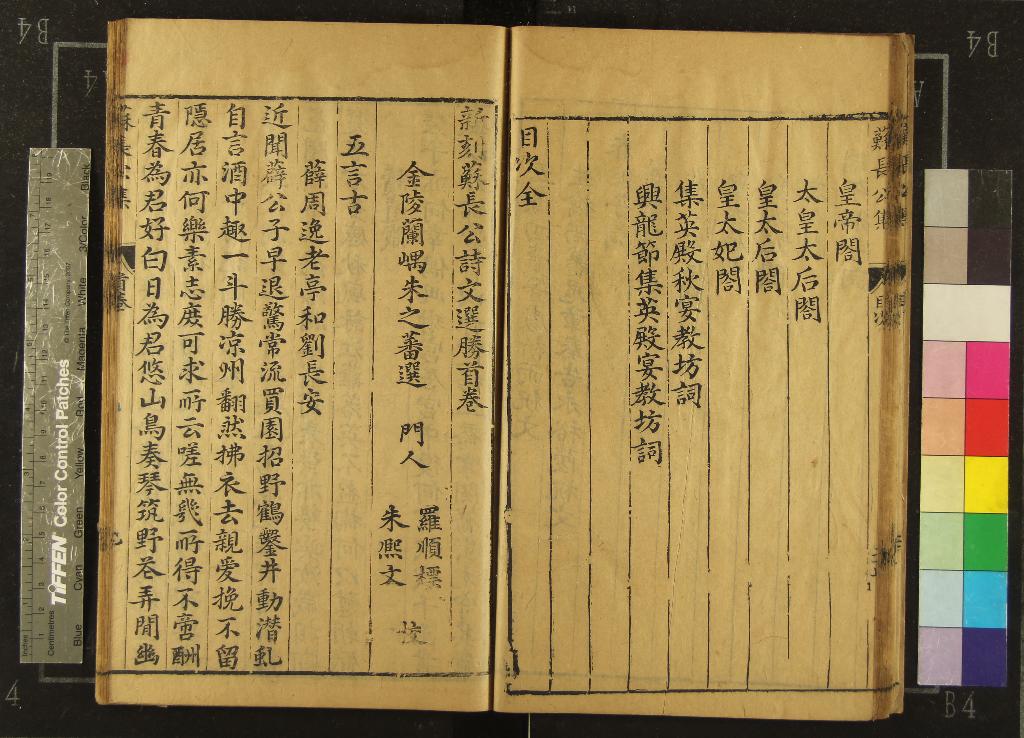 蘇長公集
目次
皇帝閤
太皇太后閤
皇太后閤
皇太妃閤
集英殿秋宴教坊詞
興龍節集英殿宴教坊詞
目次全
新刻蘇長公詩文選勝首卷
金陵蘭嵎朱之蕃選 門人
羅順
朱熈文
五言古
薛周逸老亭和劉長安
近聞薛公子早退驚常流買園招野鶴鑿井動潛虬
自言酒中趣一斗勝凉州翻然拂衣去親愛挽不留
隱居亦何樂素志庶可求所云嗟無幾所得不啻酬
青春為君好白日為君悠山鳥奏琴筑野花弄閒幽
首卷
TIFFEN Color Control Patches
Inches
Centimetres
Blue
Cyan
Green
Yellow
Red
Magenta
White
3/Color
Black
B4
B4
B4
4